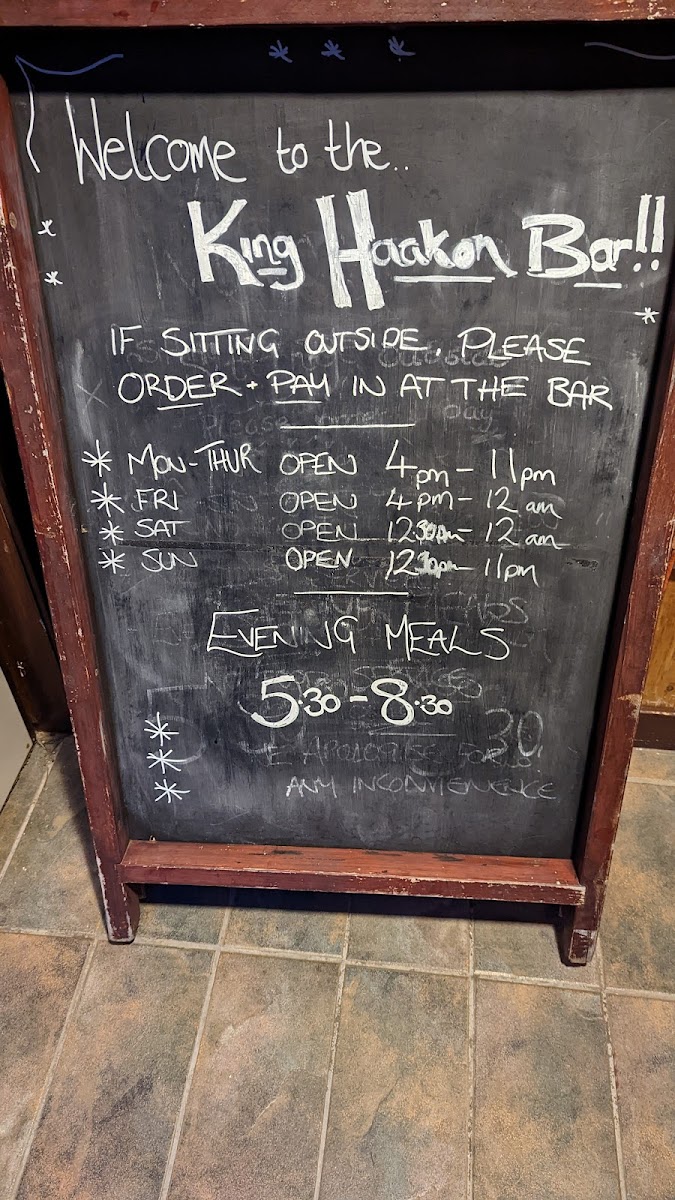 Welcome to the..
King Haakon Bar!!
IF SITTING OUTSIDE, PLEASE
ORDER + PAY IN AT THE BAR
* MON-THUR OPEN 4pm - 11pm
* FRI OPEN 4pm - 12 am
* SAT OPEN 1230pm - 12 am
* SUN OPEN 1230pm - 11pm
EVENING MEALS
5.30 - 8.30
APOLOGISE FOR
ANY INCONVENIENCE